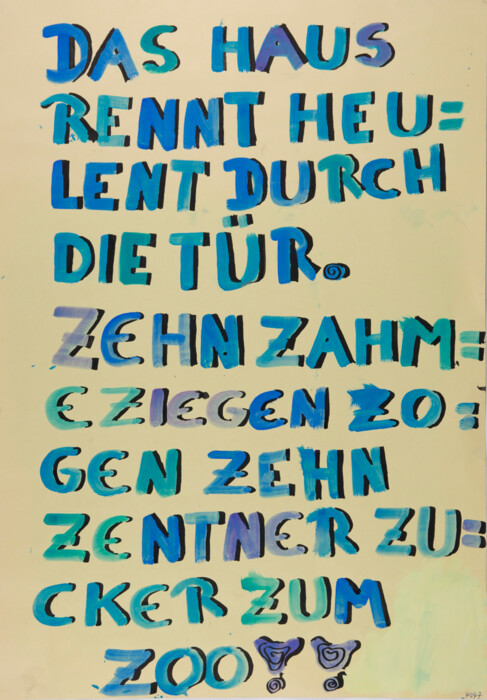 DAS HAUS
RENNT HEU=
LENT DURCH
DIE TÜR.
ZEHN ZAHM=
E ZIEGEN ZO=
GEN ZEHN
ZENTNER ZU=
CKER ZUM
ZOO!!